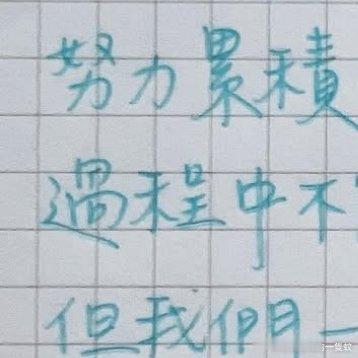 努力累積
過程中不
但我們一